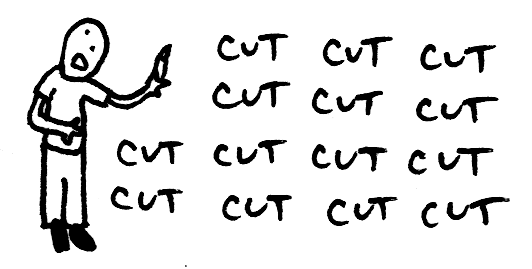 CUT CUT CUT
CUT CUT CUT
CUT CUT CUT CUT
CUT CUT CUT CUT